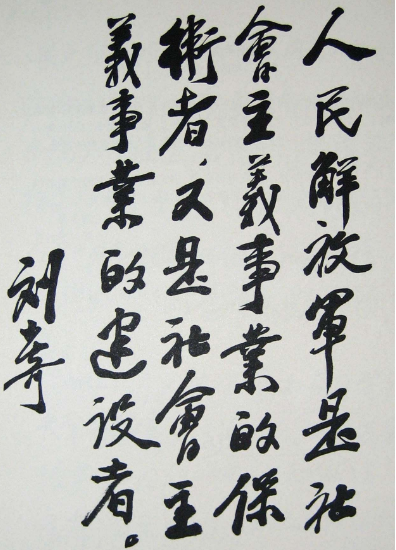 人民解放軍是社
會主義事業的保
衛者，又是社會主
義事業的建设者。
刘奇